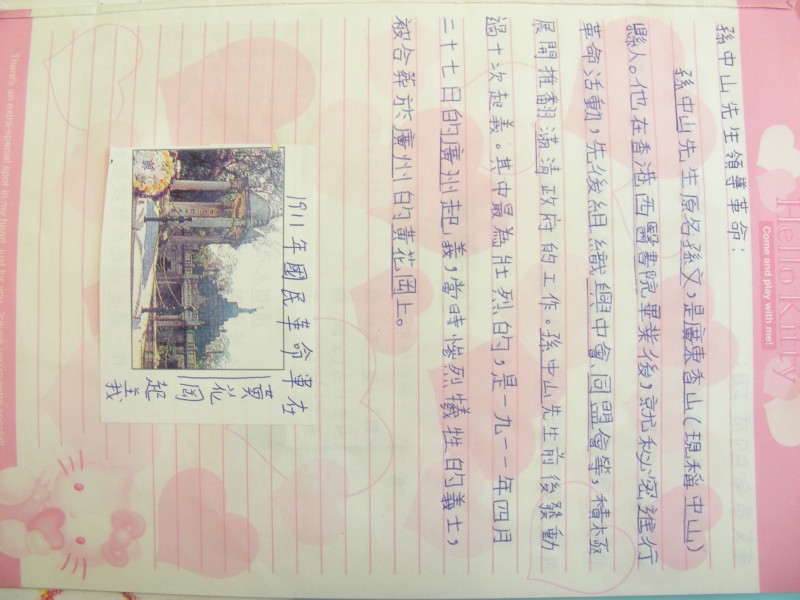 Hello Kitty
Come and play with me!
孫中山先生領導革命：
孫中山先生原名孫文，是廣東香山（現稱中山）
縣人。他在香港西醫書院畢業後，就秘密進行
革命活動，先後組織興中會、同盟會等，積極
展開推翻滿清政府的工作。孫中山先生前後發動
過十次起義。其中最為壯烈的，是一九一一年四月
二十七日的廣州起義，當時慘烈犧牲的義士，
被合葬於廣州的黃花岡上。
1911年國民革命軍在
黃花岡起義
There's an extra-special spot in my heart, just for you